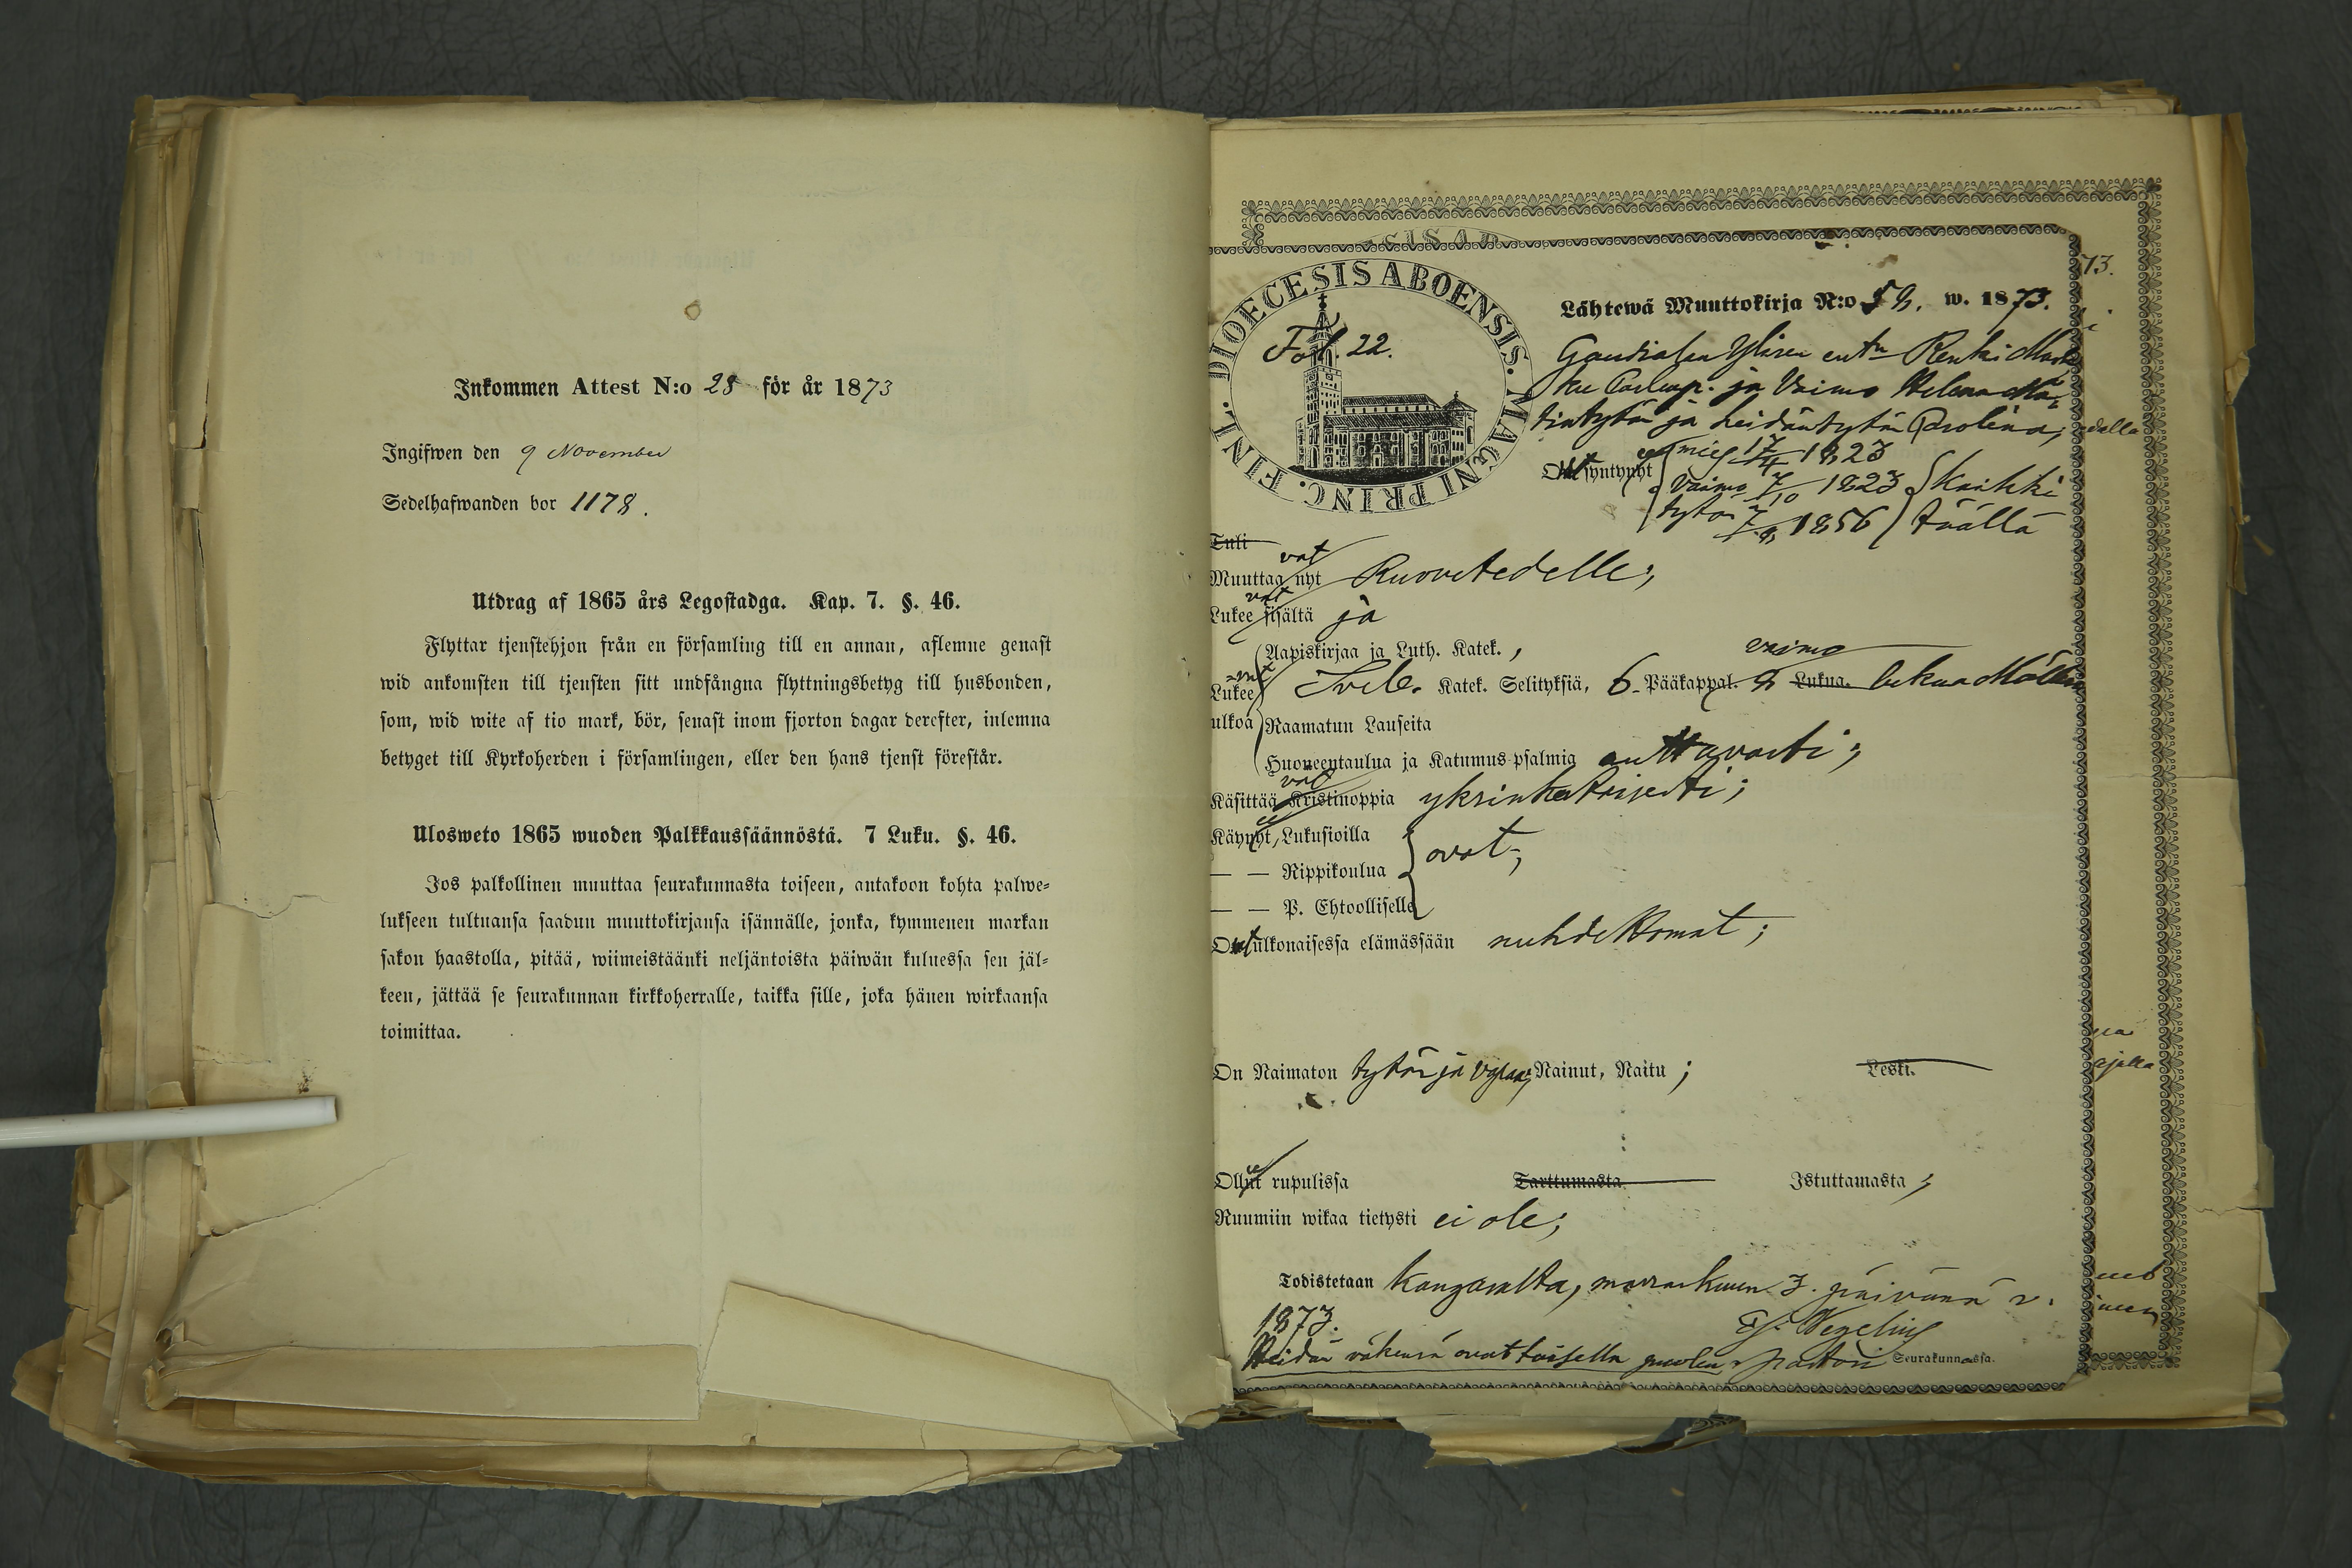 Inkommen Attest N:o 28 för år 1873
Ingifwen den 9 November
Sedelhafwanden bor 1178.
Utdrag af 1865 års Legostadga. Kap. 7. §. 46.
Flyttar tjenstehjon från en församling till en annan, aflemne genast
wid ankomsten till tjensten sitt undfångna flyttningsbetyg till husbonden,
som, wid wite af tio mark, bör, senast inom fjorton dagar derefter, inlemna
betyget till Kyrkoherden i församlingen, eller den hans tjenst förestår.
Ulosweto 1865 wuoden Palkkaussäännöstä. 7 Luku. §. 46.
Jos palkollinen muuttaa seurakunnasta toiseen, antakoon kohta palwe-
lukseen tultuansa saadun muuttokirjansa isännälle, jonka, kymmenen markan
sakon haastolla, pitää, wiimeistäänki neljäntoista päiwän kuluessa sen jäl-
keen, jättää se seurakunnan kirkkoherralle, taikka sille, joka hänen wirkaansa
toimittaa.
DIOECESIS ABOENSIS. MAGNI PRINC. FINL.
Fol. 22.
73.
Lähtewä Muuttokirja N:o 58. w. 1873.
Renki
ja Vaimo Helena
tintytär ja heidän tytär
syntynyt mies 17/4 1823
vaimo 7/10 1823 kaikki
tytär 7/8 1856 täällä
Tuli
Muuttaa vat nyt Ruovedelle;
Lukee vat sisältä ja
Aapiskirjaa ja Luth. Katek.,
Lukee vat ulkoa Sveb. Katek. Selityksiä, 6 Pääkappal. vaimo Lukua.
Raamatun Lauseita
Huoneentaulua ja Katumus-psalmia auttavasti;
Käsittää vat Kristinoppia yksinkertaisesti;
Käynyt, Lukusioilla
— — Rippikoulua ovat;
— — P. Ehtoolliselle
Ovat ulkonaisessa elämässään nuhdettomat;
On Naimaton tytär ja Nainut, Naitu; Leski.
Ollut rupulissa Tarttumasta Istuttamasta;
Ruumiin wikaa tietysti ei ole;
Todistetaan Kangasalta, marraskuun 3. päivänä v.
1873.
Heidän ovat toisella puolen Pastori Seurakunnassa.